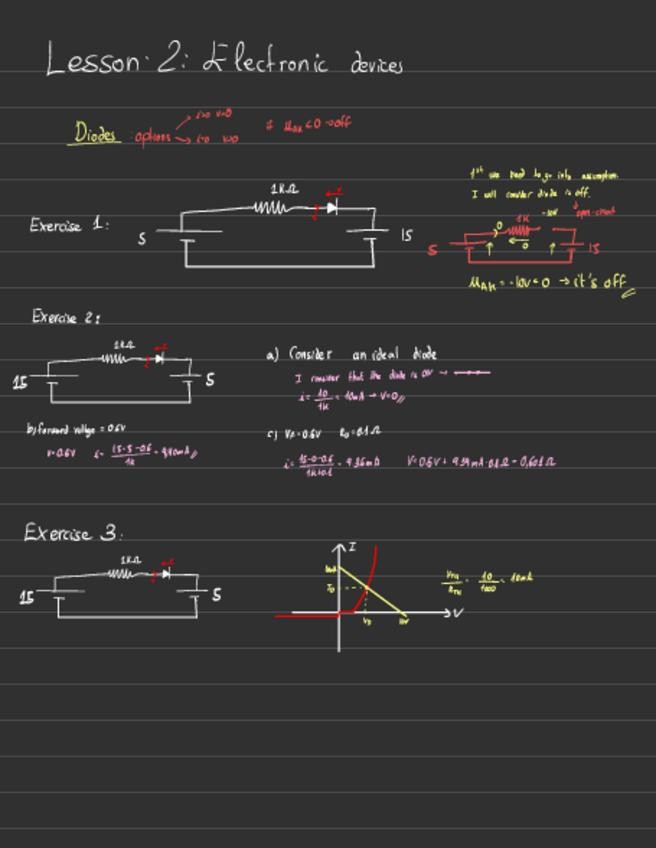 Lesson 2: Electronic devices
Diodes options
i>0 v=0
i=0 v<0
if u_AK < 0 → off
1st we need to go into assumption
I will consider diode is off.
Exercise 1:
1KΩ
5
15
1K
-10V
open-circuit
0
0
5
15
u_AK = -10V < 0 → it's off
Exercise 2:
1KΩ
15
5
a) Consider an ideal diode
I consider that the diode is ON →
i = 10/1K = 10mA → V=0
b) forward voltage = 0.6V
v=0.6V i = 15-5-0.6/1K = 9.40mA
c) VF=0.6V RD=0.1Ω
V=0.6V + 9.39mA·0.1Ω =
Exercise 3:
1KΩ
15
5
I
10mA
ID
VD
10V
V
VTH/RTH = 10/1000 = 10mA